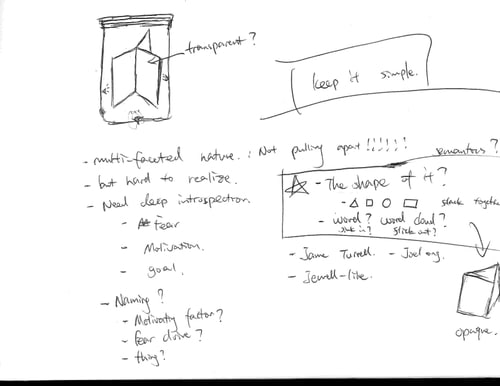 transparent?
keep it simple.
- multi-faceted nature. : Not pulling apart !!!!!!
- but hard to realize.
- Need deep introspection.
- Fear
- Motivation.
- goal.
- Naming?
- Motivating factor?
- fear drive?
- thing?
semantous?
- The shape of it?
stack together
- word? word cloud?
sink in? stick out?
- Jame Turrell. - Joel ong.
- Jewell-like.
opaque.